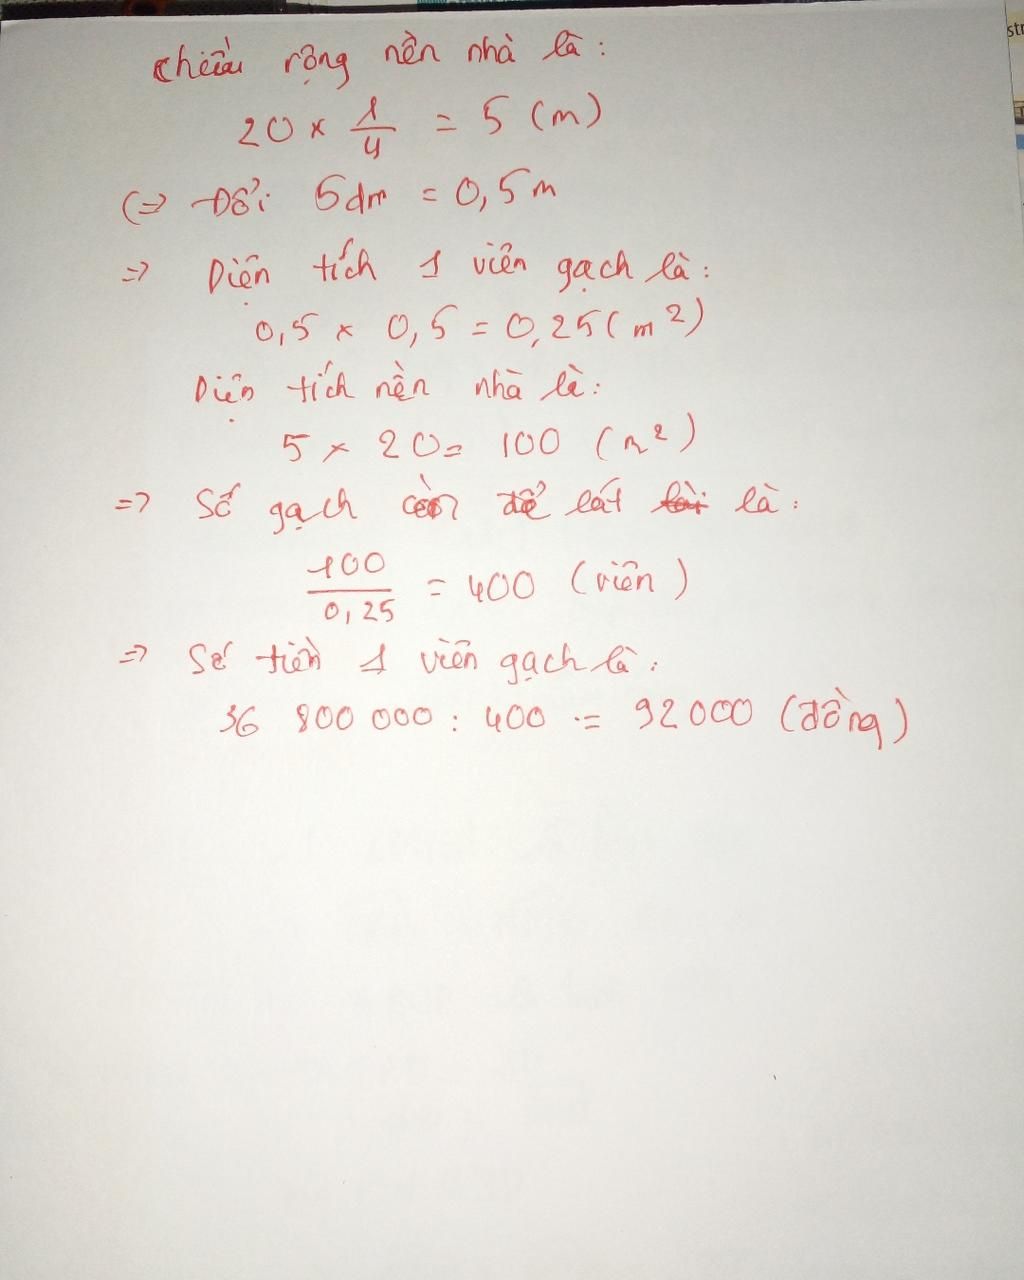 Chiều rộng nền nhà là:
20 × 1/4 = 5 (m)
(=> Đổi: 5dm = 0,5m
=> Diện tích 1 viên gạch là:
0,5 × 0,5 = 0,25 (m²)
Diện tích nền nhà là:
5 × 20 = 100 (m²)
=> Số gạch cần để lát là:
100/0,25 = 400 (viên)
=> Số tiền 1 viên gạch là:
36 800 000 : 400 = 92000 (đồng)
str